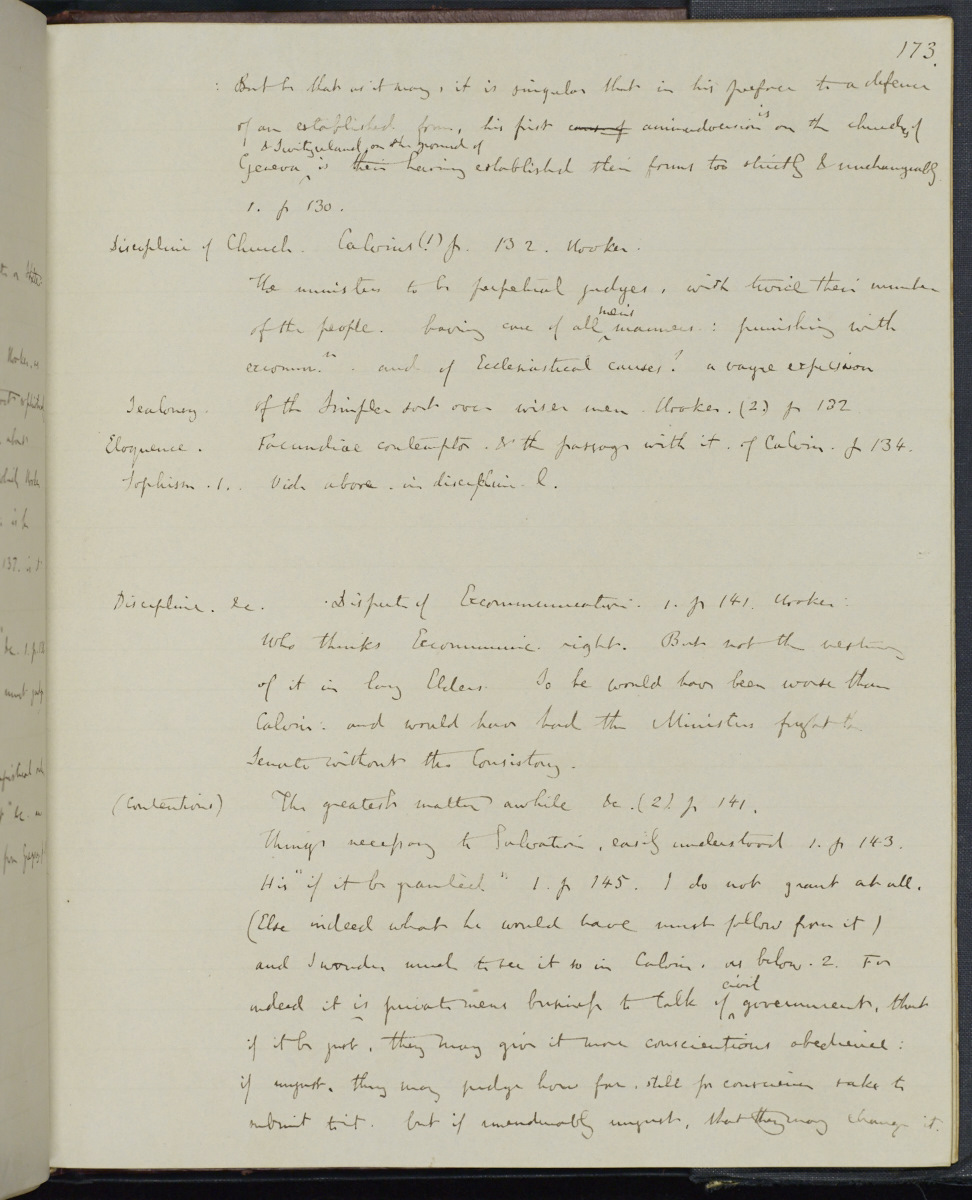 173.
: But be that as it may, it is singular that in his preface to a defence
of an established form, his first cause of animadversion is on the churches of
Geneva & Switzerland, on the ground of is their having established their forms too strictly & unchangeably
1. p 130.
Discipline of Church. Calvins (!) p. 132. Hooker.
The ministers to be perpetual judges, with twice their number
of the people. having care of all mens manners: punishing with
excomm.n. and of Ecclesiastical causes! a vague expression
Jealousy. of the simpler sort over wiser men. Hooker. (2) p 132
Eloquence. Facundiae contemptor. & the passage with it. of Calvin. p 134.
Sophism. 1. Vide above. in discipline. l.
Discipline. &c. Dispute of Excommunication. 1. p 141. Hooker:
Who thinks Excommunic. right. But not the vesting
of it in lay Elders. So he would have been worse than
Calvin: and would have had the Ministers fight the
Senate without the Consistory.
(Contentions) The greatest matter awhile &c. (2). p 141.
Things necessary to Salvation, easily understood 1. p 143.
His "if it be granted" 1. p 145. I do not grant at all.
(Else indeed what he would have must follow from it)
and I wonder much to see it so in Calvin. as below. 2. For
indeed it is private mens business to talk of civil government, that
if it be just, they may give it more conscientious obedience:
if unjust, they may judge how far. still for conscience sake to
submit to it. but if unendurably unjust, that they may change it.